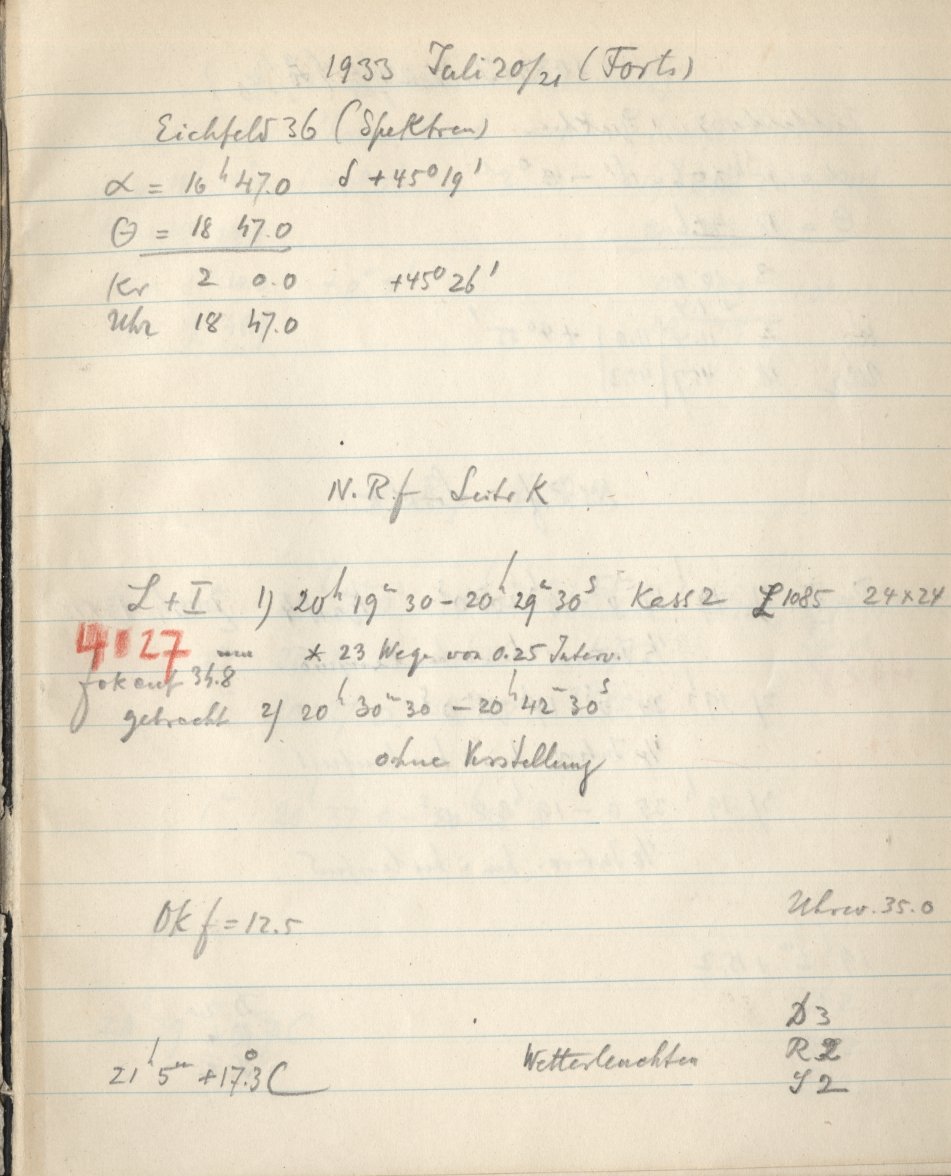 1933 Juli 20/21 (Forts)
Eichfeld 36 (Spektren)
α = 16ʰ 47.0 δ +45° 19'
Θ = 18 47.0
Kr 2 0.0 +45° 26'
Uhr 18 47.0
N. Rf Seite K
L + I 1) 20ʰ 19ᵐ 30 – 20ʰ 29ᵐ 30ˢ Kass 2 1085 24×24
4027 * 23 Wege von 0.25 Interv.
fok auf 34.8
gebracht 2) 20ʰ 30ᵐ 30 – 20ʰ 42ᵐ 30ˢ
ohne Verstellung
Ok f = 12.5 Uhrw. 35.0
D 3
21ʰ 5ᵐ +17°.3 C Wetterleuchten R 2
S 2